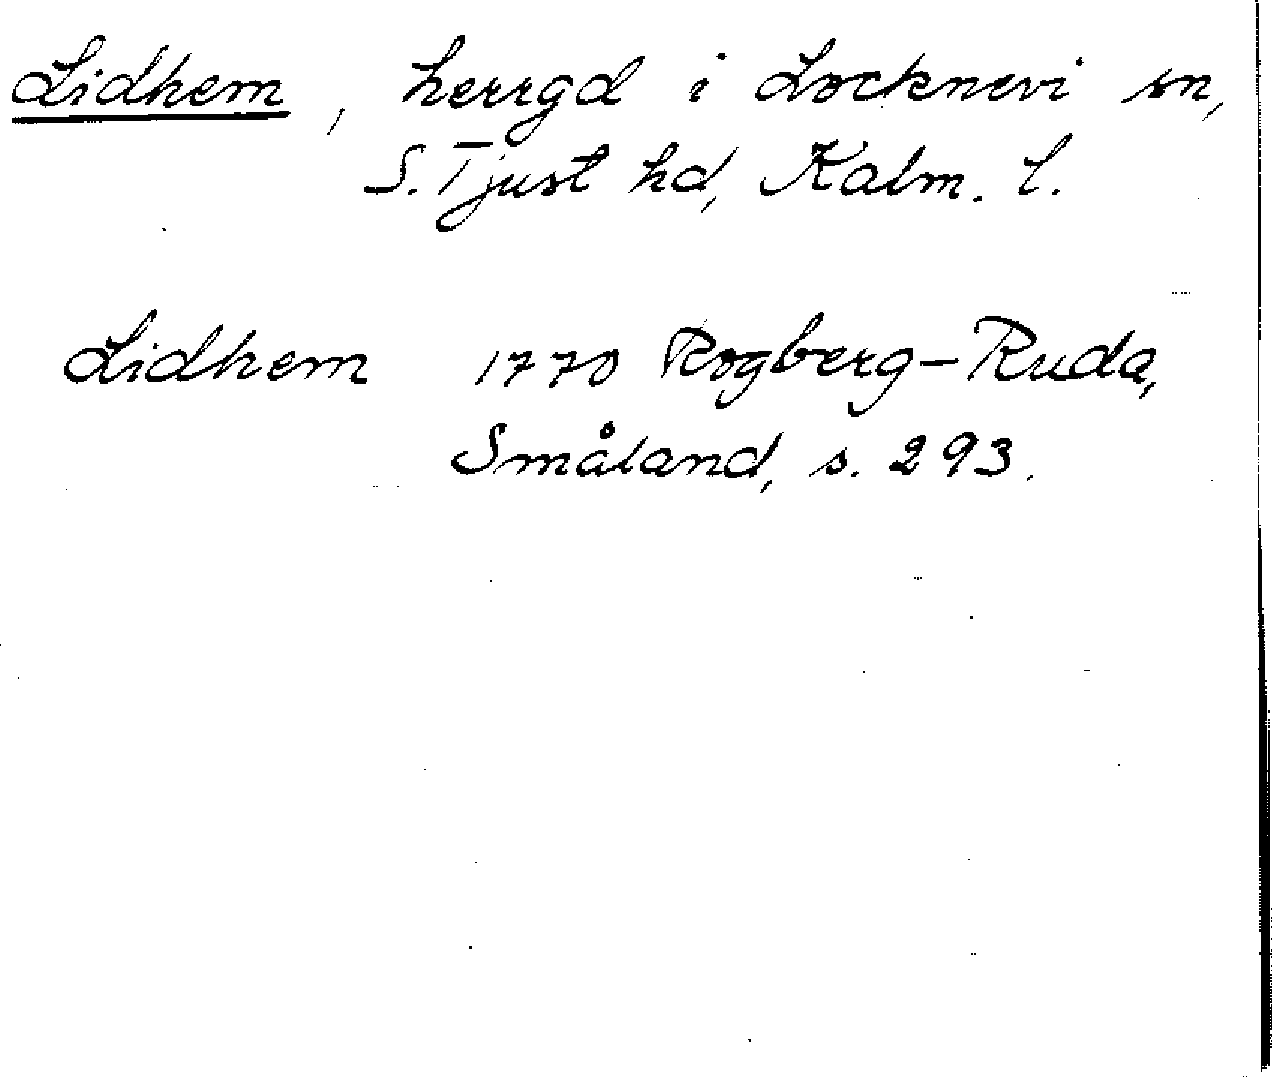 Lidhem, herrgd i Locknevi sn,
S. Tjust hd, Kalm. l.
Lidhem 1770 Rogberg-Ruda,
Småland, s. 293.